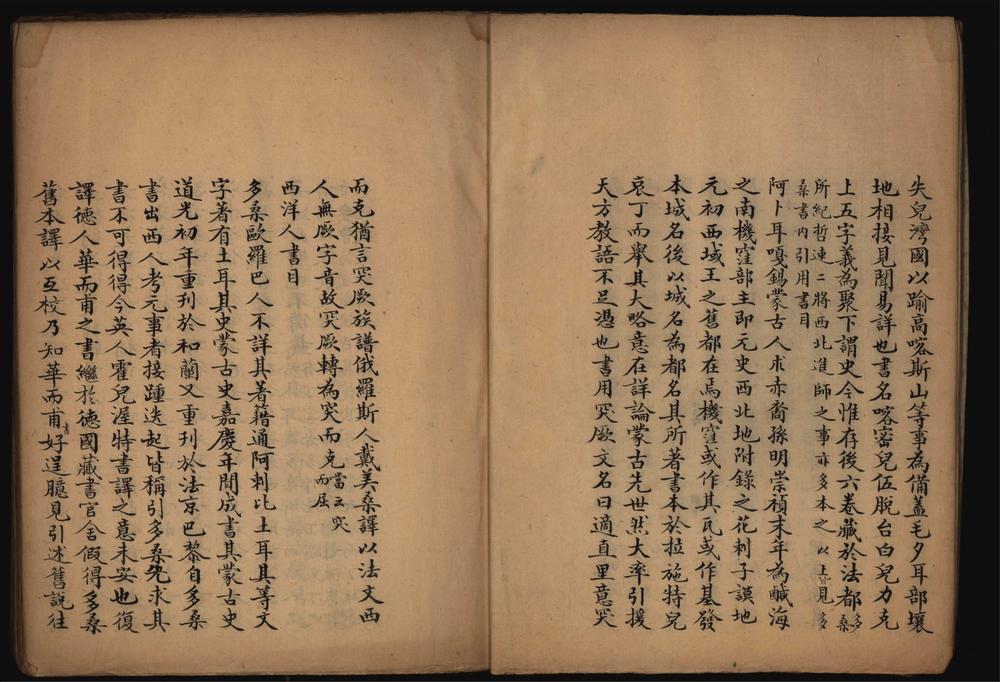 失兒灣國以踰高喀斯山等事為備蓋毛夕耳部壤
地相接見聞易詳也書名喀密兒伍脫台白兒力克
上五字義為聚下謂史今惟存後六卷藏於法都多桑
所紀哲連二將西北進師之事亦多本之以上皆見多
桑書內引用書目
阿卜耳嘎錫蒙古人朮赤裔孫明崇禎末年為鹹海
之南機窪部主即元史西北地附錄之花剌子謨地
元初西域王之舊都在焉機窪或作其瓦或作基發
本城名後以城名為都名其所著書本於拉施特兒
哀丁而舉其大略意在詳論蒙古先世然大率引援
天方教語不足憑也書用突厥文名曰適直里意突
而克猶言突厥族譜俄羅斯人戴美桑譯以法文西
人無厥字音故突厥轉為突而克當云突而屈
西洋人書目
多桑歐羅巴人不詳其著籍通阿剌比土耳其等文
字著有土耳其史蒙古史嘉慶年間成書其蒙古史
道光初年重刊於和蘭又重刊於法京巴黎自多桑
書出西人考元事者接踵迭起皆稱引多桑先求其
書不可得得今英人霍兒渥特書譯之意未安也復
譯德人華而甫之書繼於德國藏書官舍假得多桑
舊本譯以互校乃知華而甫書好逞臆見引述舊說往